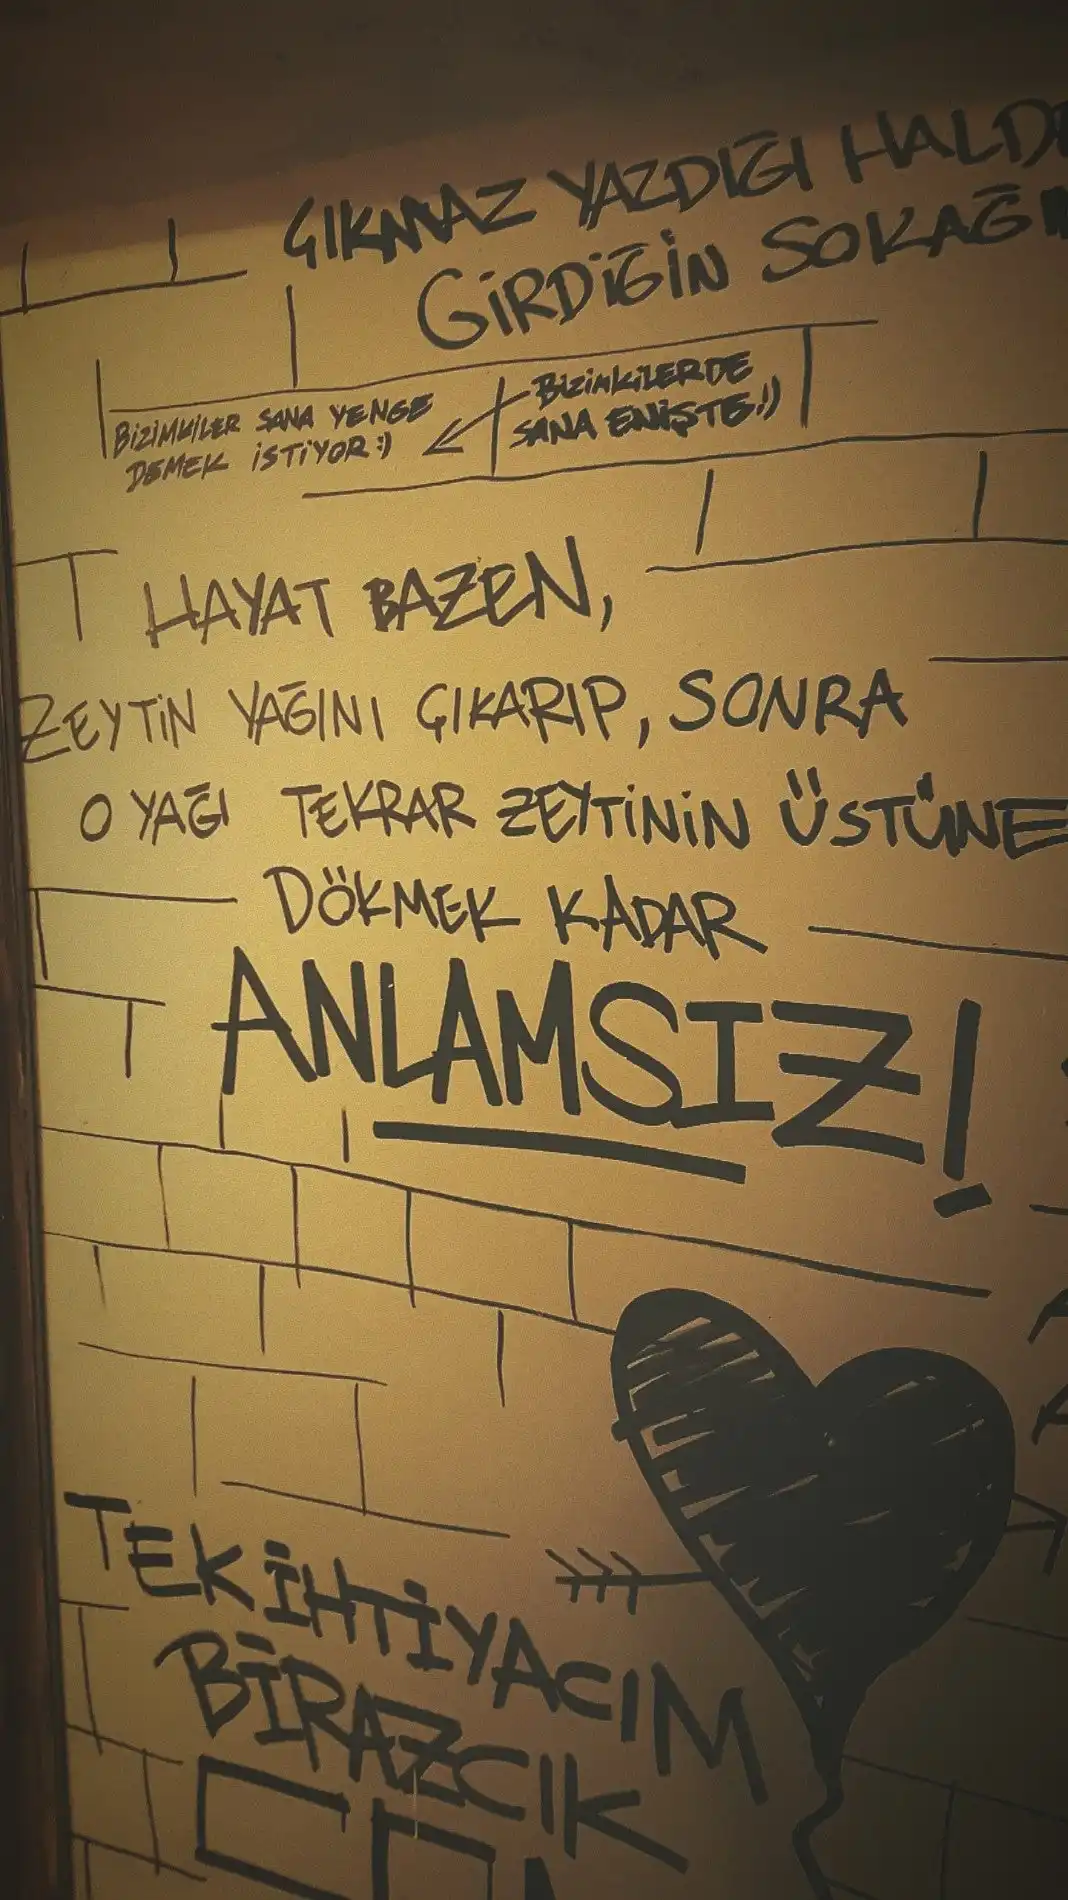 ÇIKMAZ YAZDIĞI
GİRDİĞİN
BİZİMKİLER SANA YENGE
DEMEK İSTİYOR :)
BİZİMKİLERDE
SANA ENİŞTE :)
HAYAT BAZEN,
ZEYTİN YAĞINI ÇIKARIP, SONRA
O YAĞI TEKRAR ZEYTİNİN ÜSTÜNE
DÖKMEK KADAR
ANLAMSIZ!
TEK İHTİYACIM
BİRAZCIK